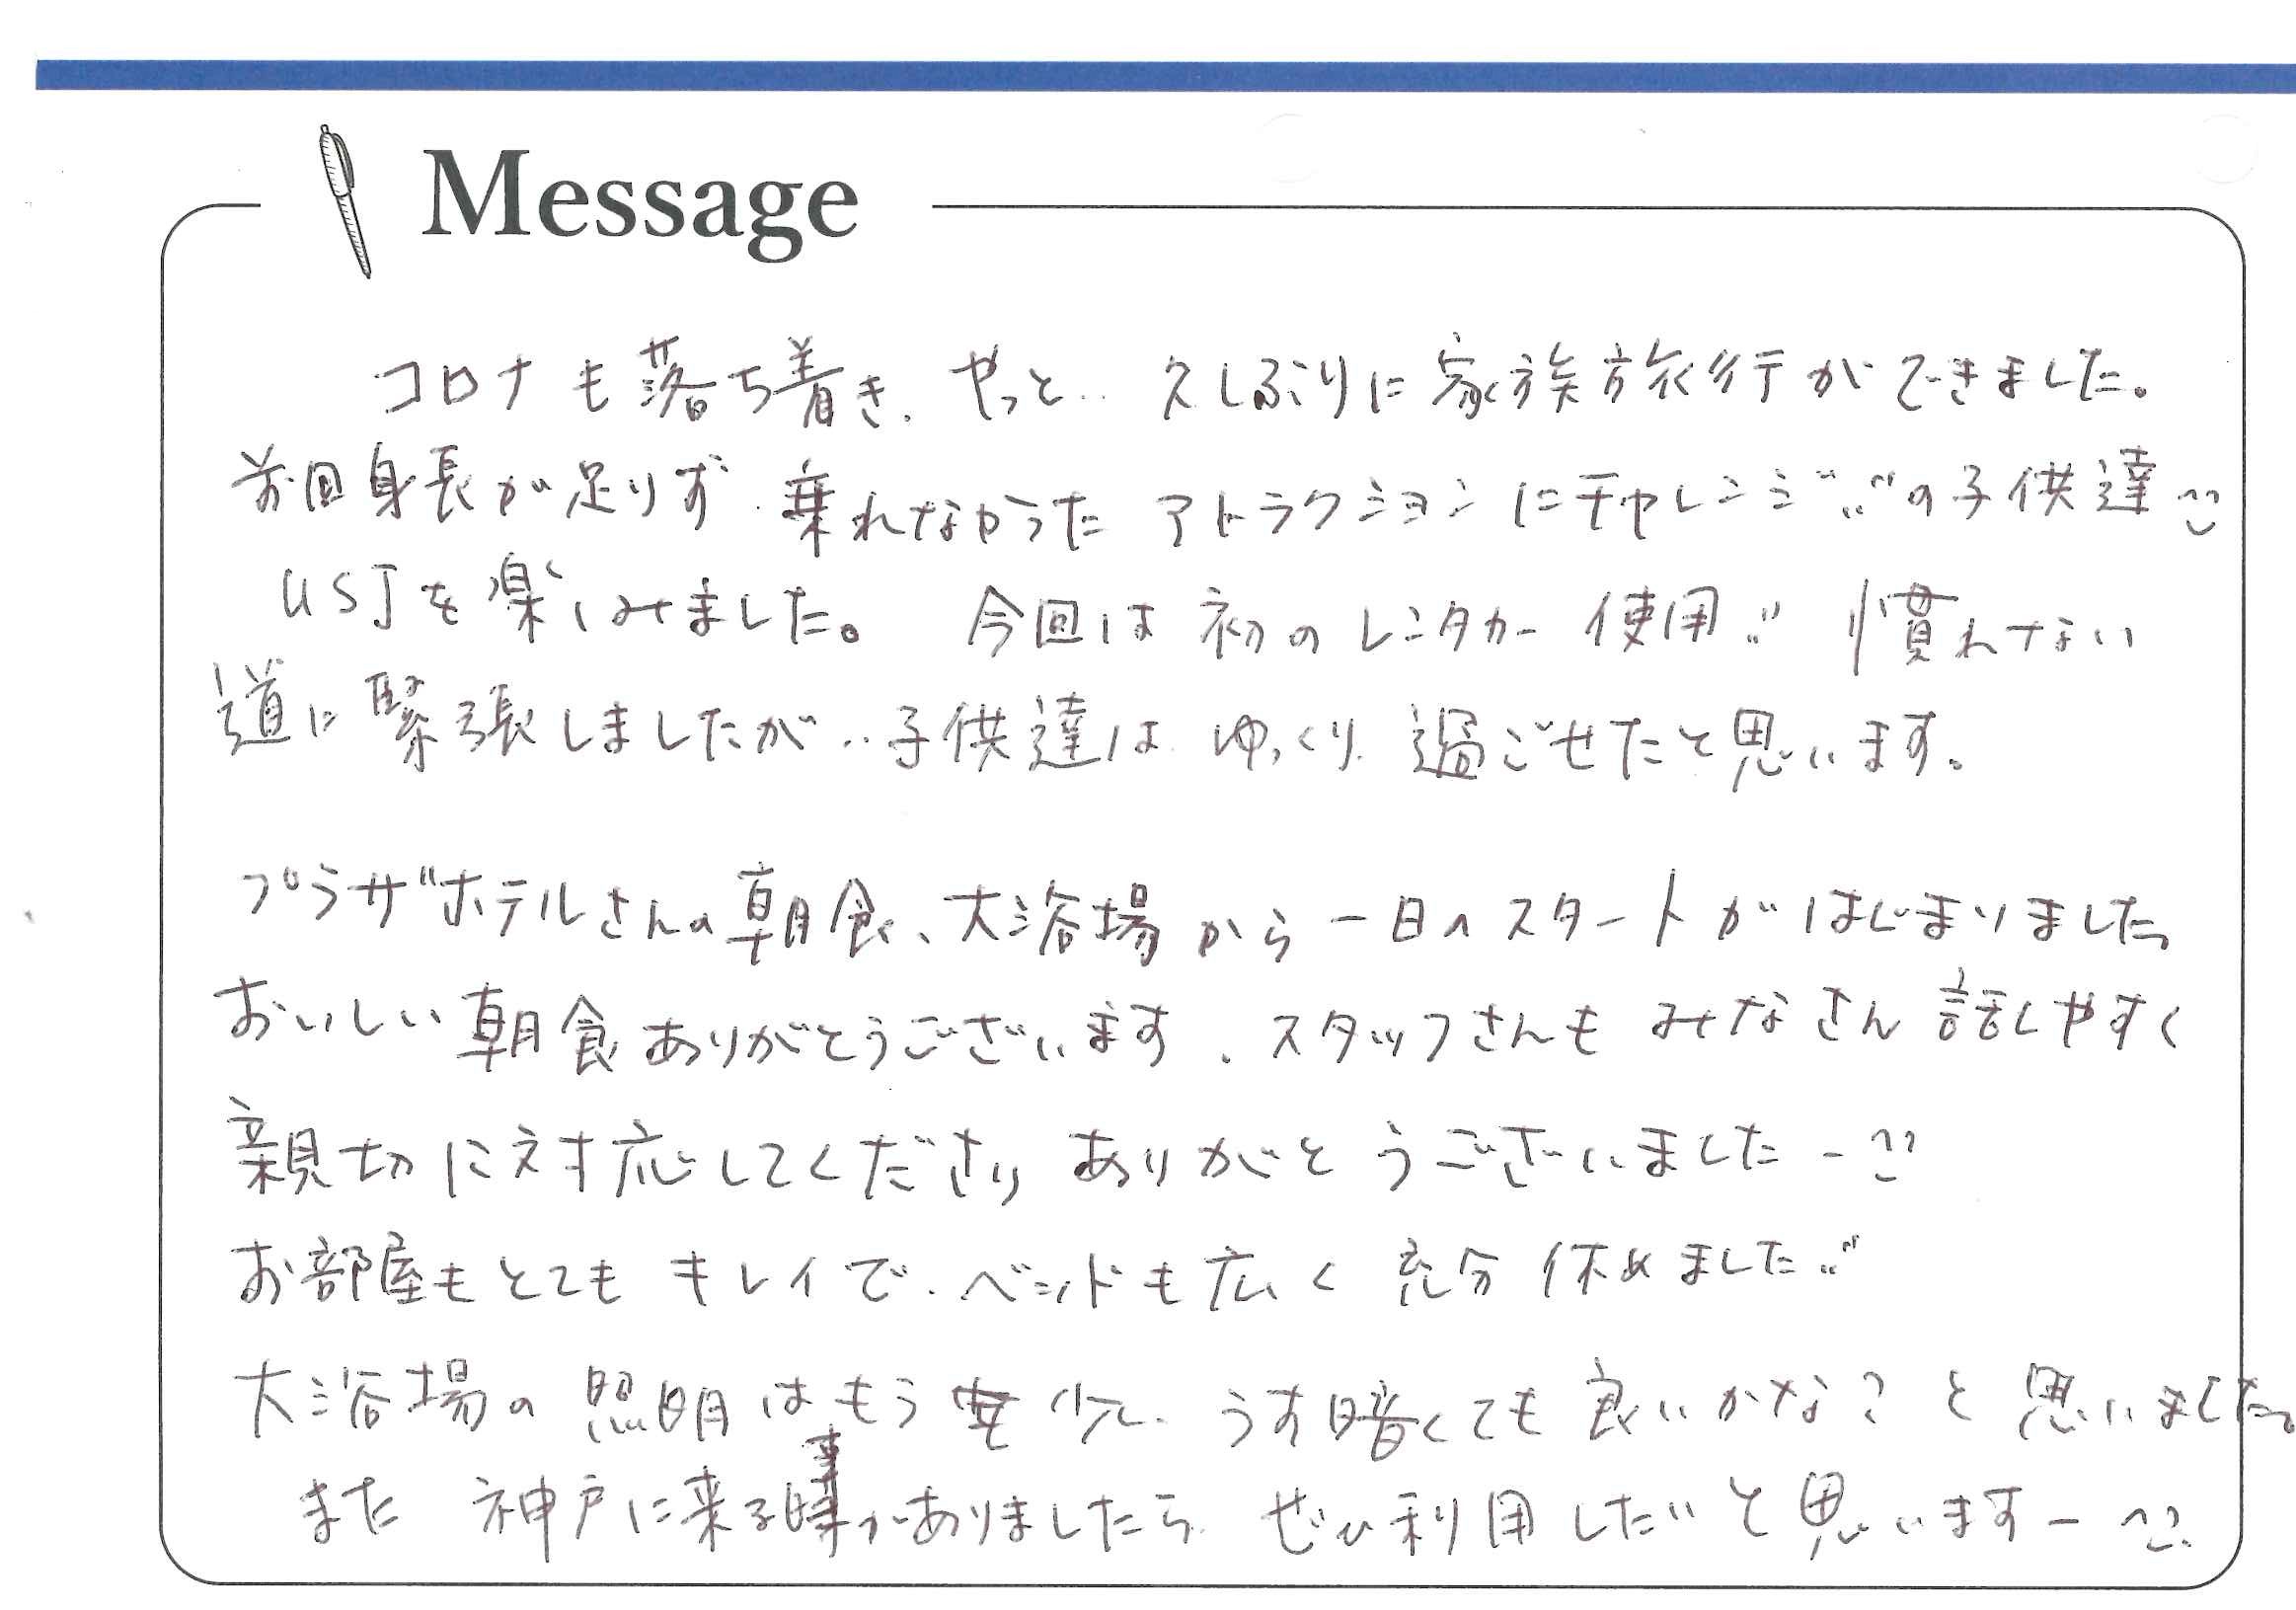 Message
コロナも落ち着き、やっと‥久しぶりに家族旅行ができました。
前回身長が足りず、乗れなかったアトラクションにチャレンジ!!の子供達
USJを楽しみました。 今回は初のレンタカー使用!! 慣れない
道に緊張しましたが‥子供達はゆっくり過ごせたと思います。
プラザホテルさんの朝食、大浴場から一日のスタートがはじまりました。
おいしい朝食ありがとうございます。スタッフさんもみなさん話しやすく
親切に対応してくださりありがとうございましたー
お部屋もとてもキレイで、ベッドも広く充分休めました!!
大浴場の照明はもう少し、うす暗くても良いかな?と思いました。
また 神戸に来る事がありましたら、ぜひ利用したいと思いますー